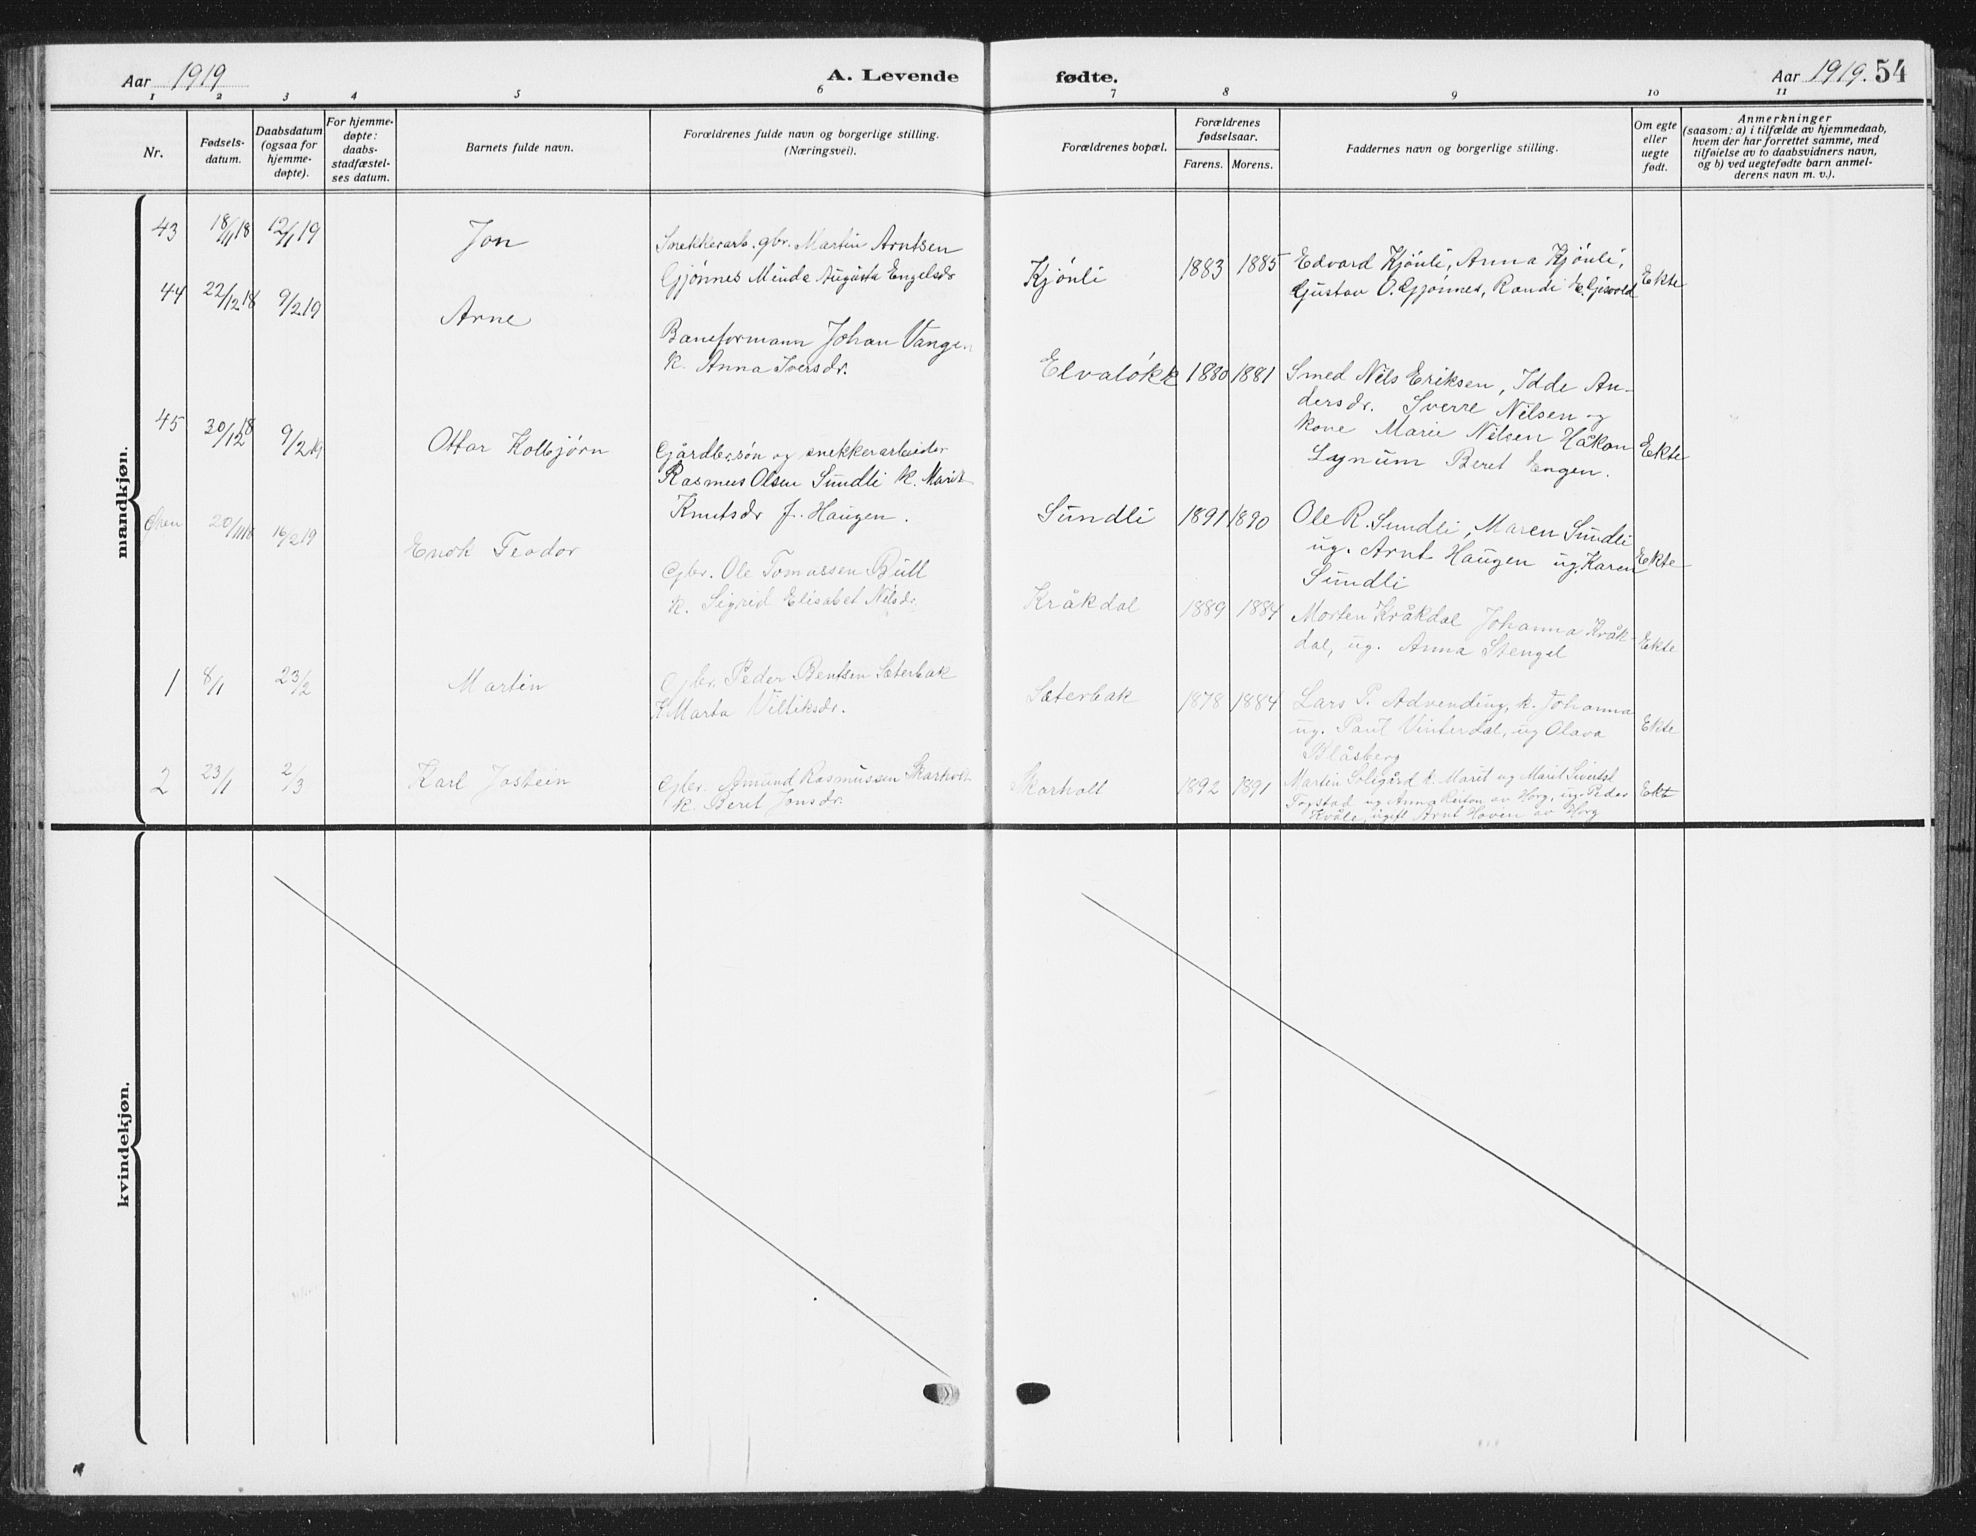 Aar 1919
A. Levende
fødte.
Aar 1919.
54
1 2 3 4 5 6 7 8 9 10 11
Nr.
Fødsels-
datum.
Daabsdatum
(ogsaa for
hjemme-
døpte).
For hjemme-
døpte:
daabs-
stadfæstel-
ses datum.
Barnets fulde navn.
Forældrenes fulde navn og borgerlige stilling.
(Næringsvei).
Forældrenes bopæl.
Forældrenes
fødselsaar.
Farens. Morens.
Faddernes navn og borgerlige stilling.
Om egte
eller
uegte
født.
Anmerkninger
(saasom: a) i tilfælde av hjemmedaab,
hvem der har forrettet samme, med
tilføielse av to daabsvidners navn,
og b) ved uegtefødte barn anmel-
derens navn m. v.).
mandkjøn.
43 18/11 18 12/1 19
Jon
Snekkerarb. gbr. Martin Arntsen
Gjønnes Minda Augusta Engelsdr
Kjönli 1883 1885
Edvard Kjönli, Anna Kjönli,
Gustav O. Gjönnes, Randi E. Gisvold
Ekte
44 22/12 18 9/2 19
Arne
Baneformann Johan Vangen
k. Anna Iversdr.
Elvalökk 1880 1881
Smed Nils Eriksen, Idde An-
dersdr. Sverre Nilsen og
kone Marie Nilsen Håkon
Lynum Beret Engen.
Ekte
45 30/12 18 9/2 19
Ottar Kolbjørn
Gårdbr.søn og snekkerarbeider
Rasmus Olsen Sundli k. Marit
Knutsdr f. Haugen.
Sundli 1891 1890
Ole R. Sundli, Maren Sundli
ug. Arnt Haugen ug. Karen
Sundli
Ekte
20/11 18 16/2 19
Enok Teodor
Gbr. Ole Tomassen Bull
k. Sigrid Elisabet Nilsdr.
Kråkdal 1889 1884
Morten Kråkdal Johanna Kråk-
dal, ug. Anna Stengel
Ekte
1 8/1 23/2
Martin
Gbr. Peder Bentsen Sæterbak
K Marta
Sæterbak 1878 1884
Lars P. Advending, k. Johanna
ug. Paul Vinterdal, ug Olava
Blåsberg
Ekte
2 23/1 2/3
Karl Jostein
Gbr. Amund Rasmussen Skarholt
k. Beret Jonsdr.
Skarholt 1892 1891
Martin Solegård k. Marit og Marit Sivertst
Fogstad ug Anna Reitan av Horg, ug. Peder
Kvåle, ugift Arnt Hoven av Horg
Ekt
kvindekjøn.